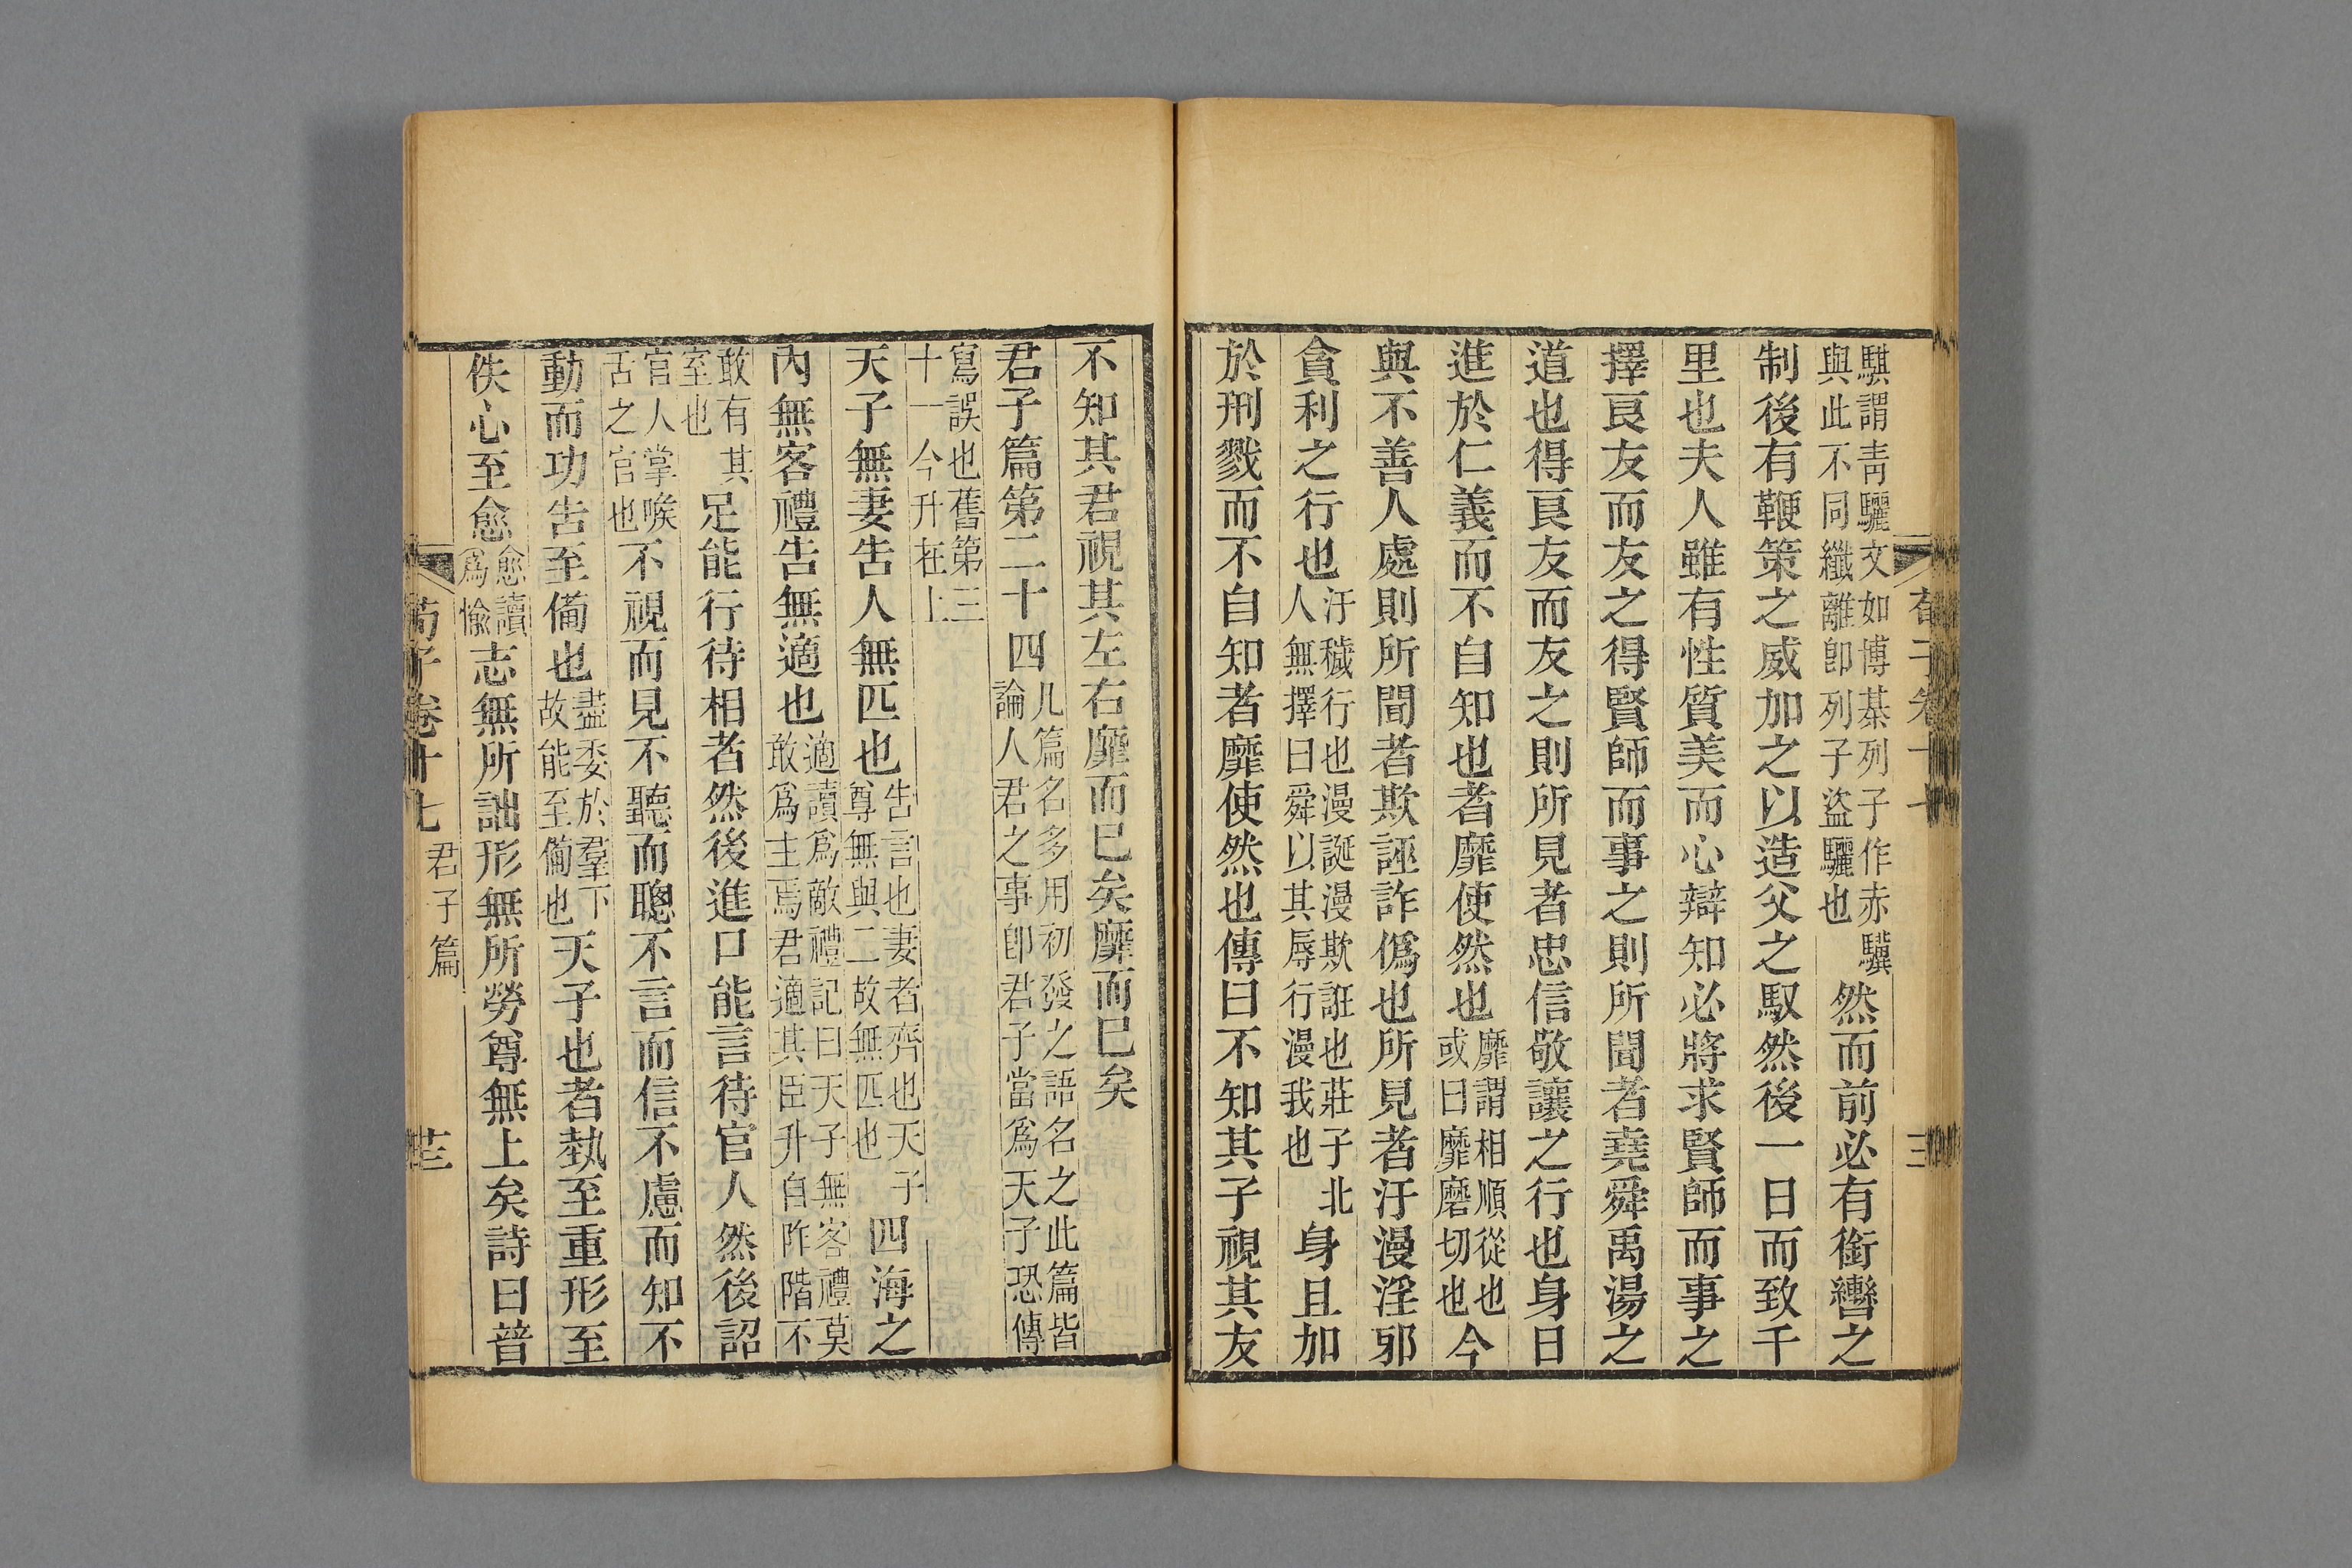 騏謂青驪文如博棊列子作赤驥
與此不同纖離卽列子盜驪也
然而前必有銜轡之
制後有鞭策之威加之以造父之馭然後一日而致千
里也夫人雖有性質美而心辯知必將求賢師而事之
擇良友而友之得賢師而事之則所聞者堯舜禹湯之
道也得良友而友之則所見者忠信敬讓之行也身日
進於仁義而不自知也者靡使然也
靡謂相順從也
或曰靡磨切也
今
與不善人處則所聞者欺誣詐僞也所見者汙漫淫邪
貪利之行也
汙穢行也漫誕漫欺誑也莊子北
人無擇曰舜以其辱行漫我也
身且加
於刑戮而不自知者靡使然也傳曰不知其子視其友
不知其君視其左右靡而已矣靡而已矣
君子篇第二十四
凡篇名多用初發之語名之此篇皆
論人君之事卽君子當爲天子恐傳
寫誤也舊第三
十一今升在上
天子無妻告人無匹也
告言也妻者齊也天子
尊無與二故無匹也
四海之
內無客禮告無適也
適讀爲敵禮記曰天子無客禮莫
敢爲主焉君適其臣升自阼階不
敢有其
室也
足能行待相者然後進口能言待官人然後詔
官人掌喉
舌之官也
不視而見不聽而聰不言而信不慮而知不
動而功告至備也
盡委於羣下
故能至備也
天子也者埶至重形至
佚心至愈
愈讀
爲愉
志無所詘形無所勞尊無上矣詩曰普
荀子卷十七
君子篇